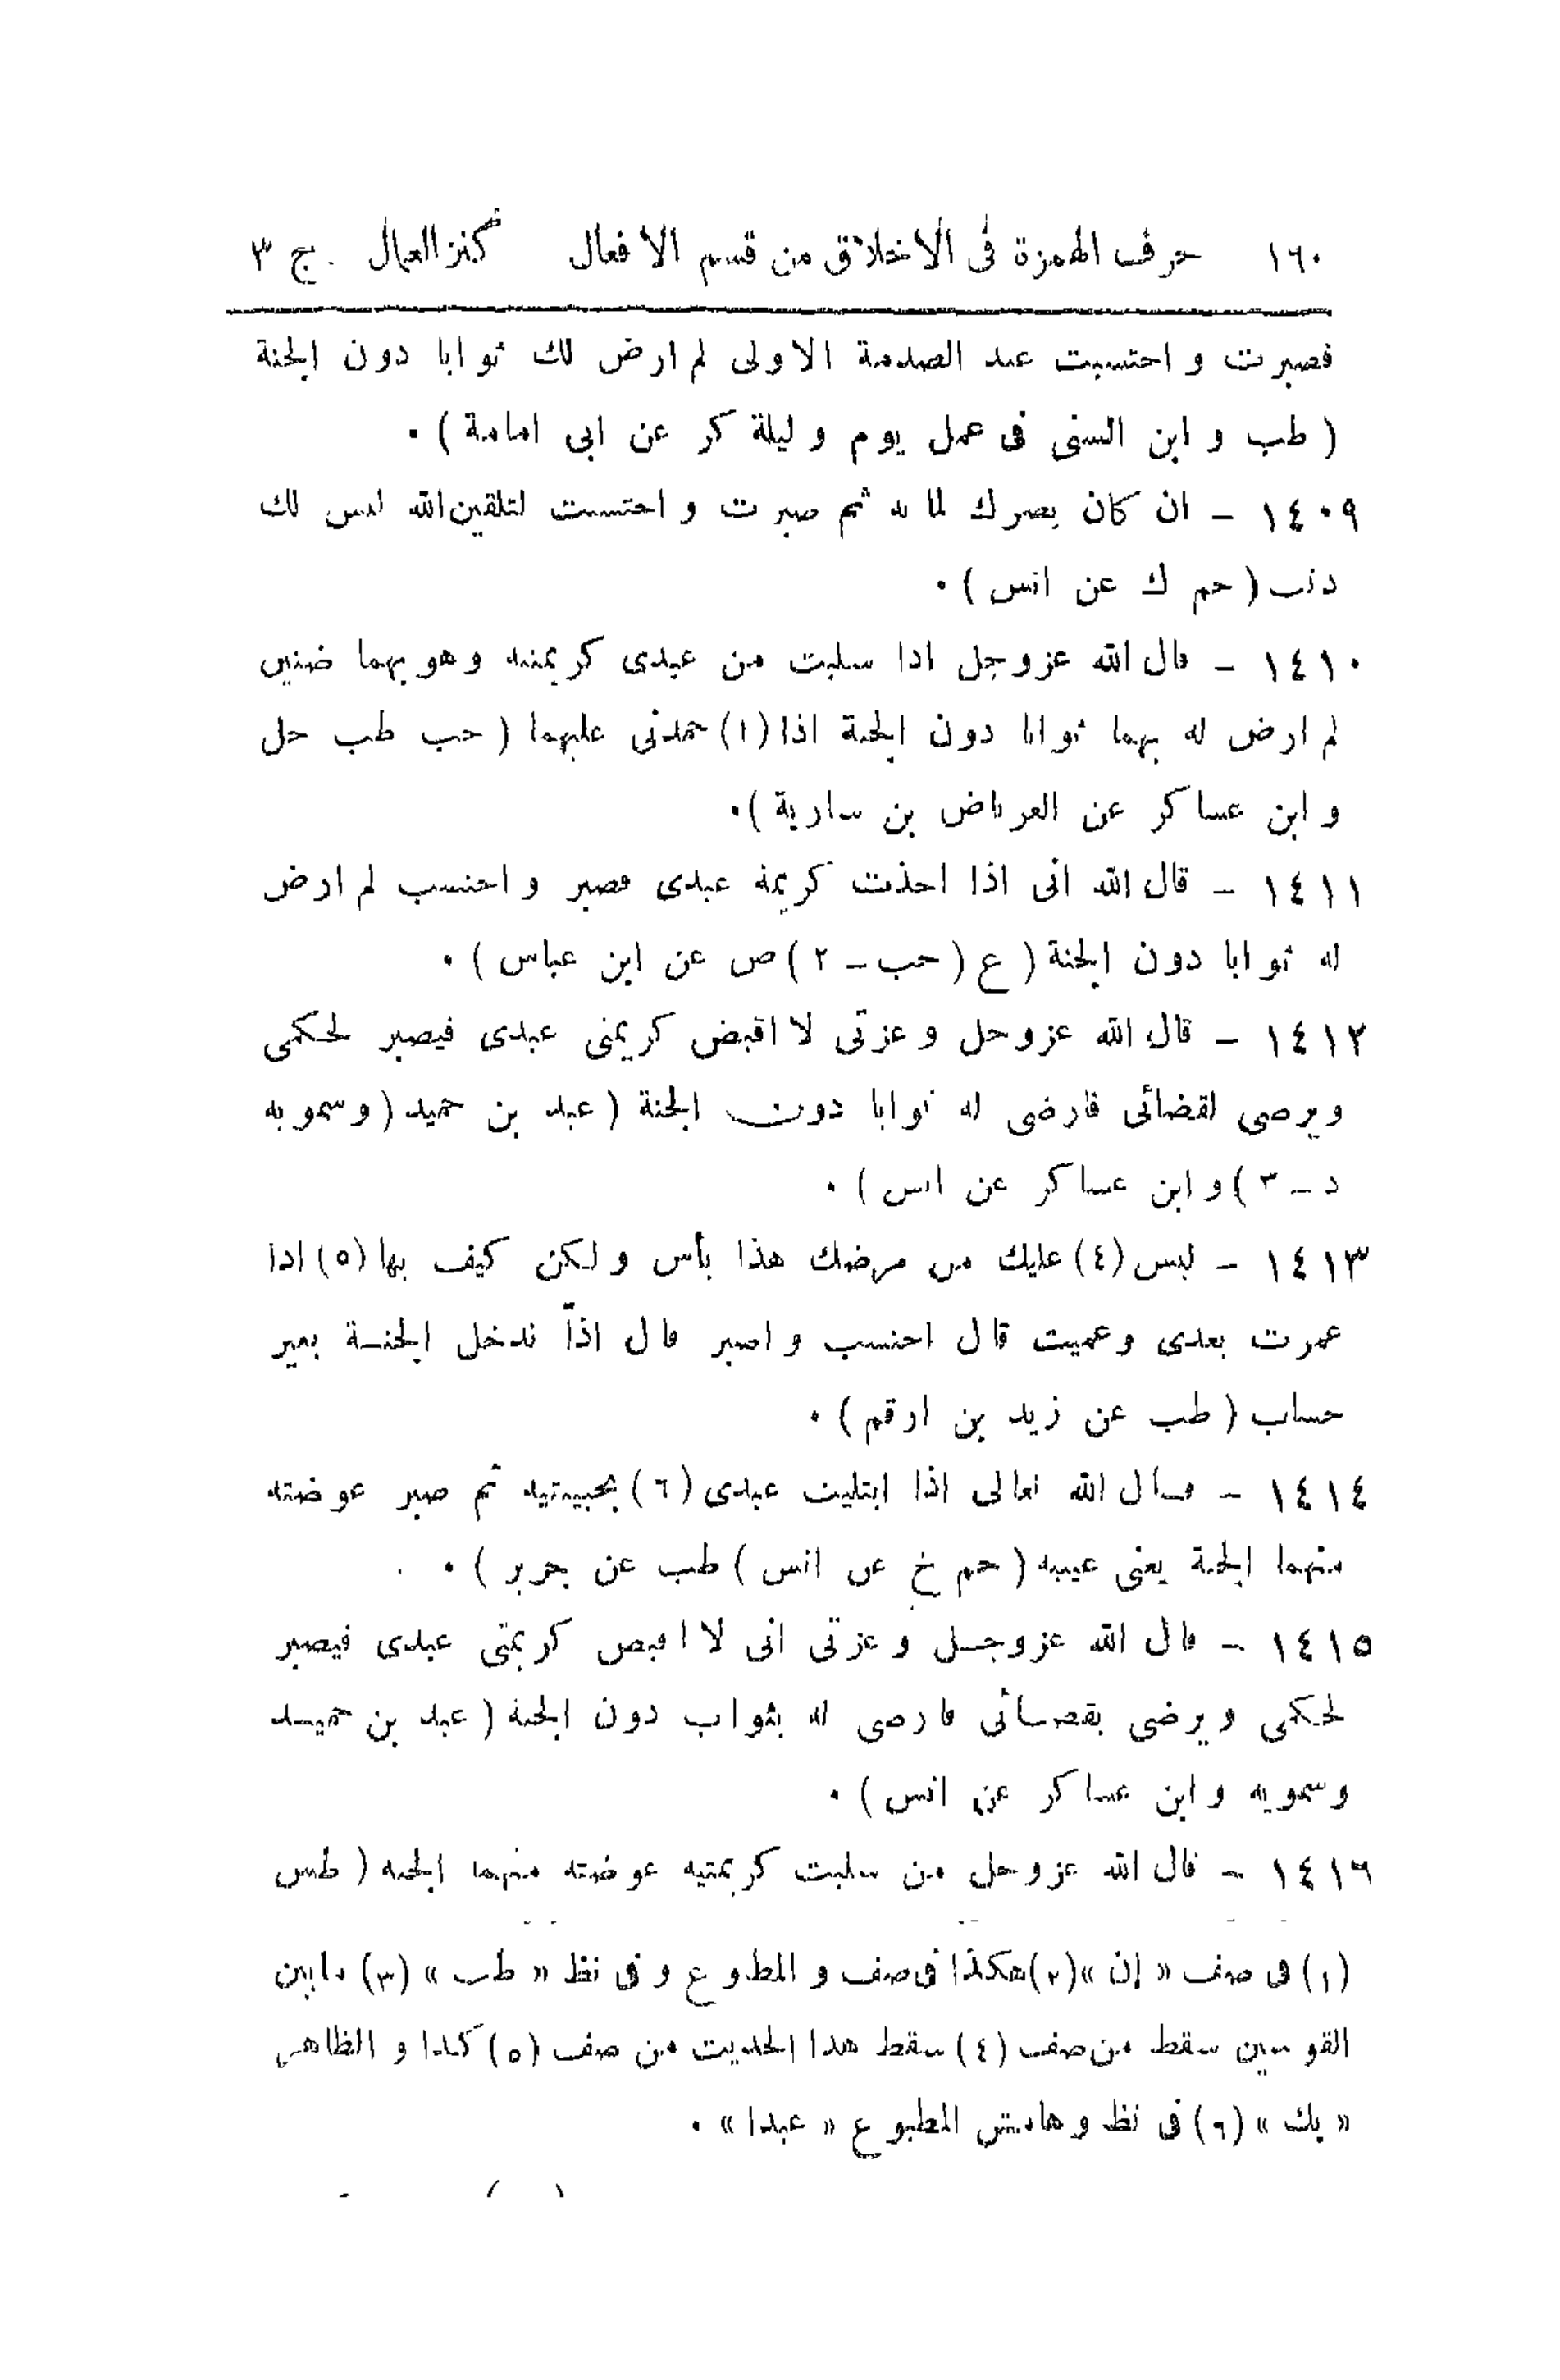 ١٦٠ حرف الهمزة فى الاخلاق من قسم الافعال كنز العمال . ج ٣
فصبرت و احتسبت عند الصدمة الاولى لم ارض لك ثوابا دون الجنة
( طب و ابن السنى فى عمل يوم و ليلة كر عن ابى امامة ) .
١٤٠٩ - ان كان بصرك لما به ثم صبرت و احتسبت لتلقين الله ليس لك
ذنب ( حم ك عن انس ) .
١٤١٠ - قال الله عز وجل اذا سلبت من عبدى كريمتيه وهو بهما ضنين
لم ارض له بهما ثوابا دون الجنة اذا (١) حمدنى عليهما ( حب طب حل
و ابن عساكر عن العرباض بن سارية ).
١٤١١ - قال الله انى اذا اخذت كريمة عبدى فصبر و احتسب لم ارض
له ثوابا دون الجنة ( ع ( حب ـ ٢ ) ص عن ابن عباس ) .
١٤١٢ - قال الله عز وجل و عزتى لا اقبض كريمتى عبدى فيصبر لحكمى
ويرضى لقضائى فارضى له ثوابا دون الجنة ( عبد بن حميد ( وسمويه
د ـ ٣ ) و ابن عساكر عن انس ) .
١٤١٣ - ليس (٤) عليك من مرضك هذا بأس و لكن كيف بها (٥) اذا
عمرت بعدى وعميت قال احتسب و اصبر قال اذاً تدخل الجنة بغير
حساب ( طب عن زيد بن ارقم ) .
١٤١٤ - قال الله تعالى اذا ابتليت عبدى (٦) بحبيبتيه ثم صبر عوضته
منهما الجنة يعنى عينيه ( حم خ عن انس ) طب عن جرير ) .
١٤١٥ - قال الله عز وجل و عزتى انى لا اقبض كريمتى عبدى فيصبر
لحكمى ويرضى بقضائى فارضى له بثواب دون الجنة ( عبد بن حميد
وسمويه و ابن عساكر عن انس ) .
١٤١٦ - قال الله عز وجل من سلبت كريمتيه عوضته منهما الجنة ( طس
(١) فى صف « إن » (٢) هكذا فى صف و المطبوع و فى نظ « طب » (٣) ما بين
القوسين سقط من صف (٤) سقط هذا الحديث من صف (٥) كذا و الظاهر
« بك » (٦) فى نظ و هامش المطبوع « عبدا » .